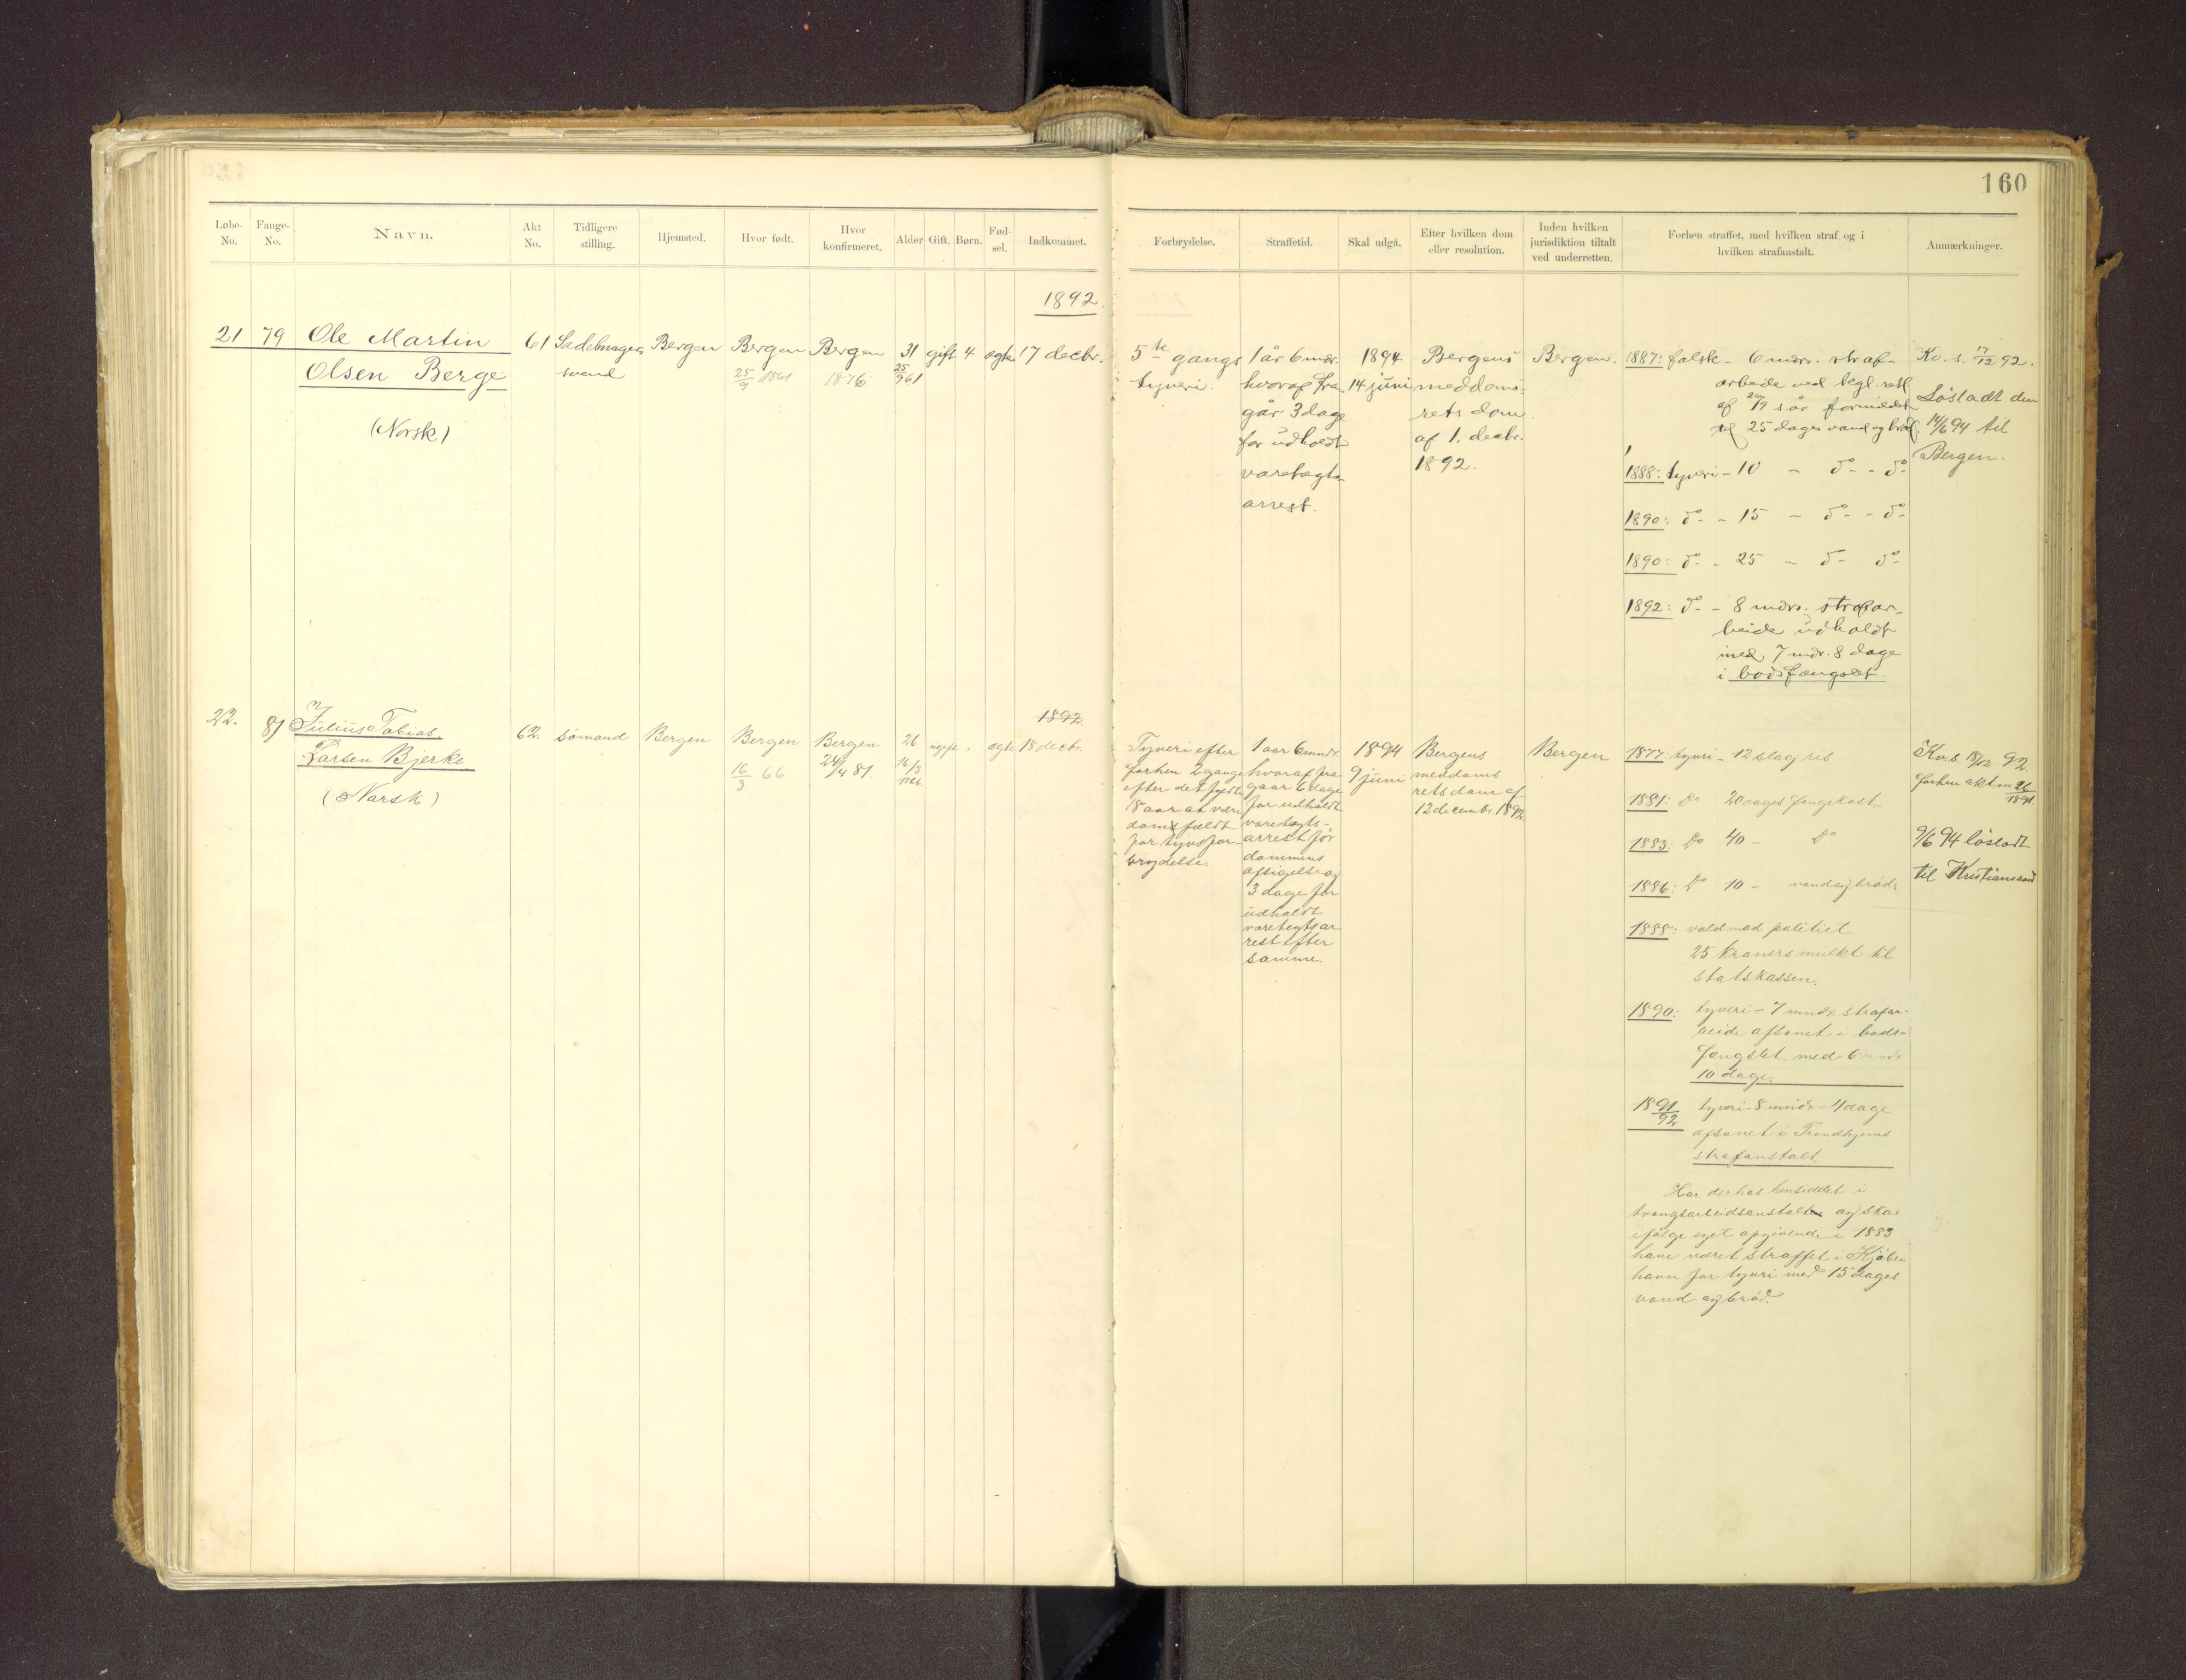 160
Løbe-No. Fange-No. Navn. Akt No. Tidligere stilling. Hjemsted. Hvor født. Hvor konfirmeret. Alder Gift. Børn. Fød-sel. Indkommet.
Forbrydelse. Straffetid. Skal udgå. Efter hvilken dom eller resolution. Inden hvilken jurisdiktion tiltalt ved underretten. Forhen straffet, med hvilken straf og i hvilken strafanstalt. Anmærkninger.
1892.
21 79 Ole Martin
Olsen Berge
(Norsk)
61
Sadelmagers
svend
Bergen
Bergen
25/9 1861
Bergen
1876
31
25/9 61
gift
4
ægte
17 decbr.
5te gangs
tyveri.
1 år 6 mdr.
hvoraf fra-
går 3 dage
for udholdt
varetægts-
arrest.
1894
14 juni
Bergens
meddoms-
rets dom
af 1. decbr.
1892.
Bergen.
1887: falsk - 6 mdrs. straf-
arbeide ved kgl. resl.
af 20/9 s. år formildet
til 25 dages vand og brød.
1888: tyveri - 10 - do - do
1890: do - 15 - do - do
1890: do - 25 - do do
1892: do - 8 mdrs. strafar-
beide udholdt
med 7 mdr. 8 dage
i bodsfængslet.
Kv. s. 17/12 92.
Løsladt den
14/6 94 til
Bergen.
22. 81 Julius Tobias
Larsen Bjerke
(Norsk)
62.
sømand
Bergen
Bergen
16/3 66
Bergen
24/4 81.
26
16/3
ugift
ægte
1892.
18 decbr.
Tyveri efter
forhen 2 gange
efter det fyldte
18 aar at være
domfældt
for tyvsfor-
brydelse.
1 aar 6 mndr.
hvoraf fra-
gaar 6 dage
for udholdt
varetægts-
arrest før
dommens
afsigelse og
3 dage for
udholdt
varetegtsar
rest efter
samme.
1894
9 juni
Bergens
meddoms
rets dom af
12 decembr. 1892
Bergen
1877: tyveri - 12 slag ris
1881: Do 20 dages fangekost
1883: Do 40 - Do
1886: Do 10 - vand og brød.
1888: vold mod politiet
25 kroners mulkt til
statskassen.
1890: tyveri - 7 mndr. strafar-
beide afsonet i bods-
fængslet med 6
10 dage.
1891/92 tyveri - 8 mndr. 4 dage
afsonet i Trondhjems
strafanstalt.
Har derhos hensiddet i
tvangsarbeidsanstalt og skal
ifølge eget opgivende i 1883
have været straffet i Kjøben
havn for tyveri med 15 dages
vand og brød.
Kv. s. 18/12 92.
forhen akt no 26/1891
9/6 94 løsladt
til Kristianssand